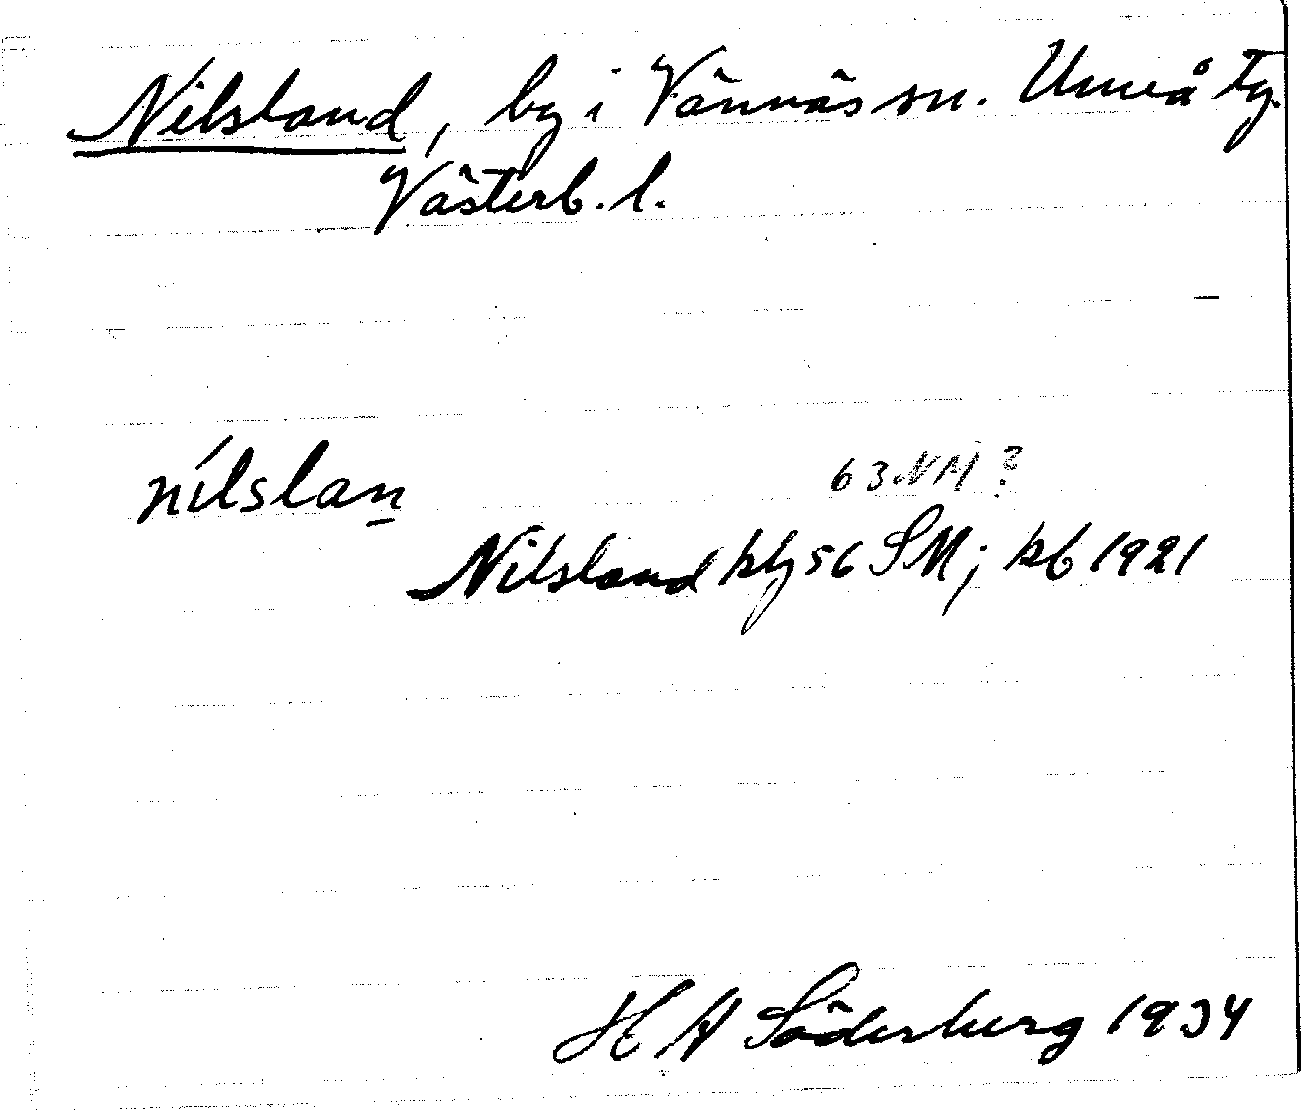 Nilsland, by i Vännäs sn. Umeå Tg.
Västerb. l.
nílslan̲
63 NM?
Nilsland kbl 56 SM; kb 1921
H A Söderberg 1934